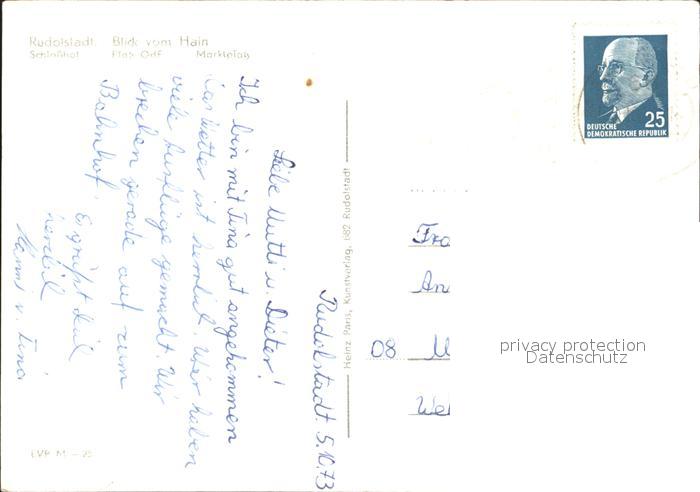 Rudolstadt. Blick vom Hain
Schloßhof Platz-Odf Marktplatz
Rudolstadt. 5.10.73
Liebe Mutti u. Dieter!
Ich bin mit Tina gut angekommen
das Wetter ist herrlich. Wir haben
viele Ausflüge gemacht. Wir
brechen gerade auf zum
Bahnhof.
Es grüßt Euch
herzlich
Hanns u. Tina
EVP M -.25
Heinz Paris, Kunstverlag, 682 Rudolstadt
25
DEUTSCHE
DEMOKRATISCHE REPUBLIK
Fra
An
08
Wei
privacy protection
Datenschutz